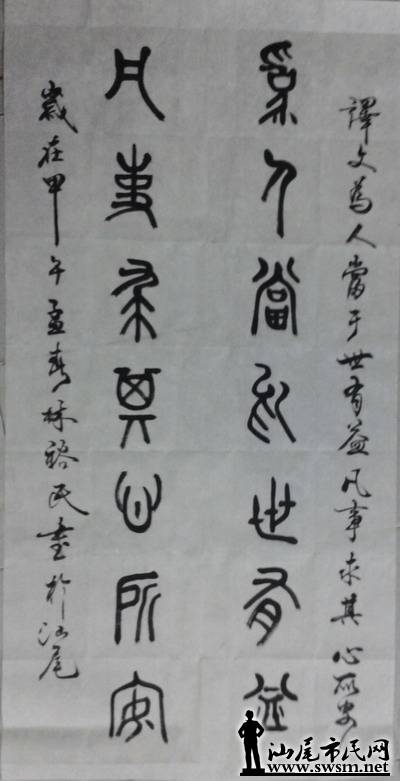 譯文為人當于世有益凡事求其心所安
為人當於世有益
凡事求其心所安
歲在甲午孟春林裕民書於汕尾
汕尾市民网
www.swsm.net